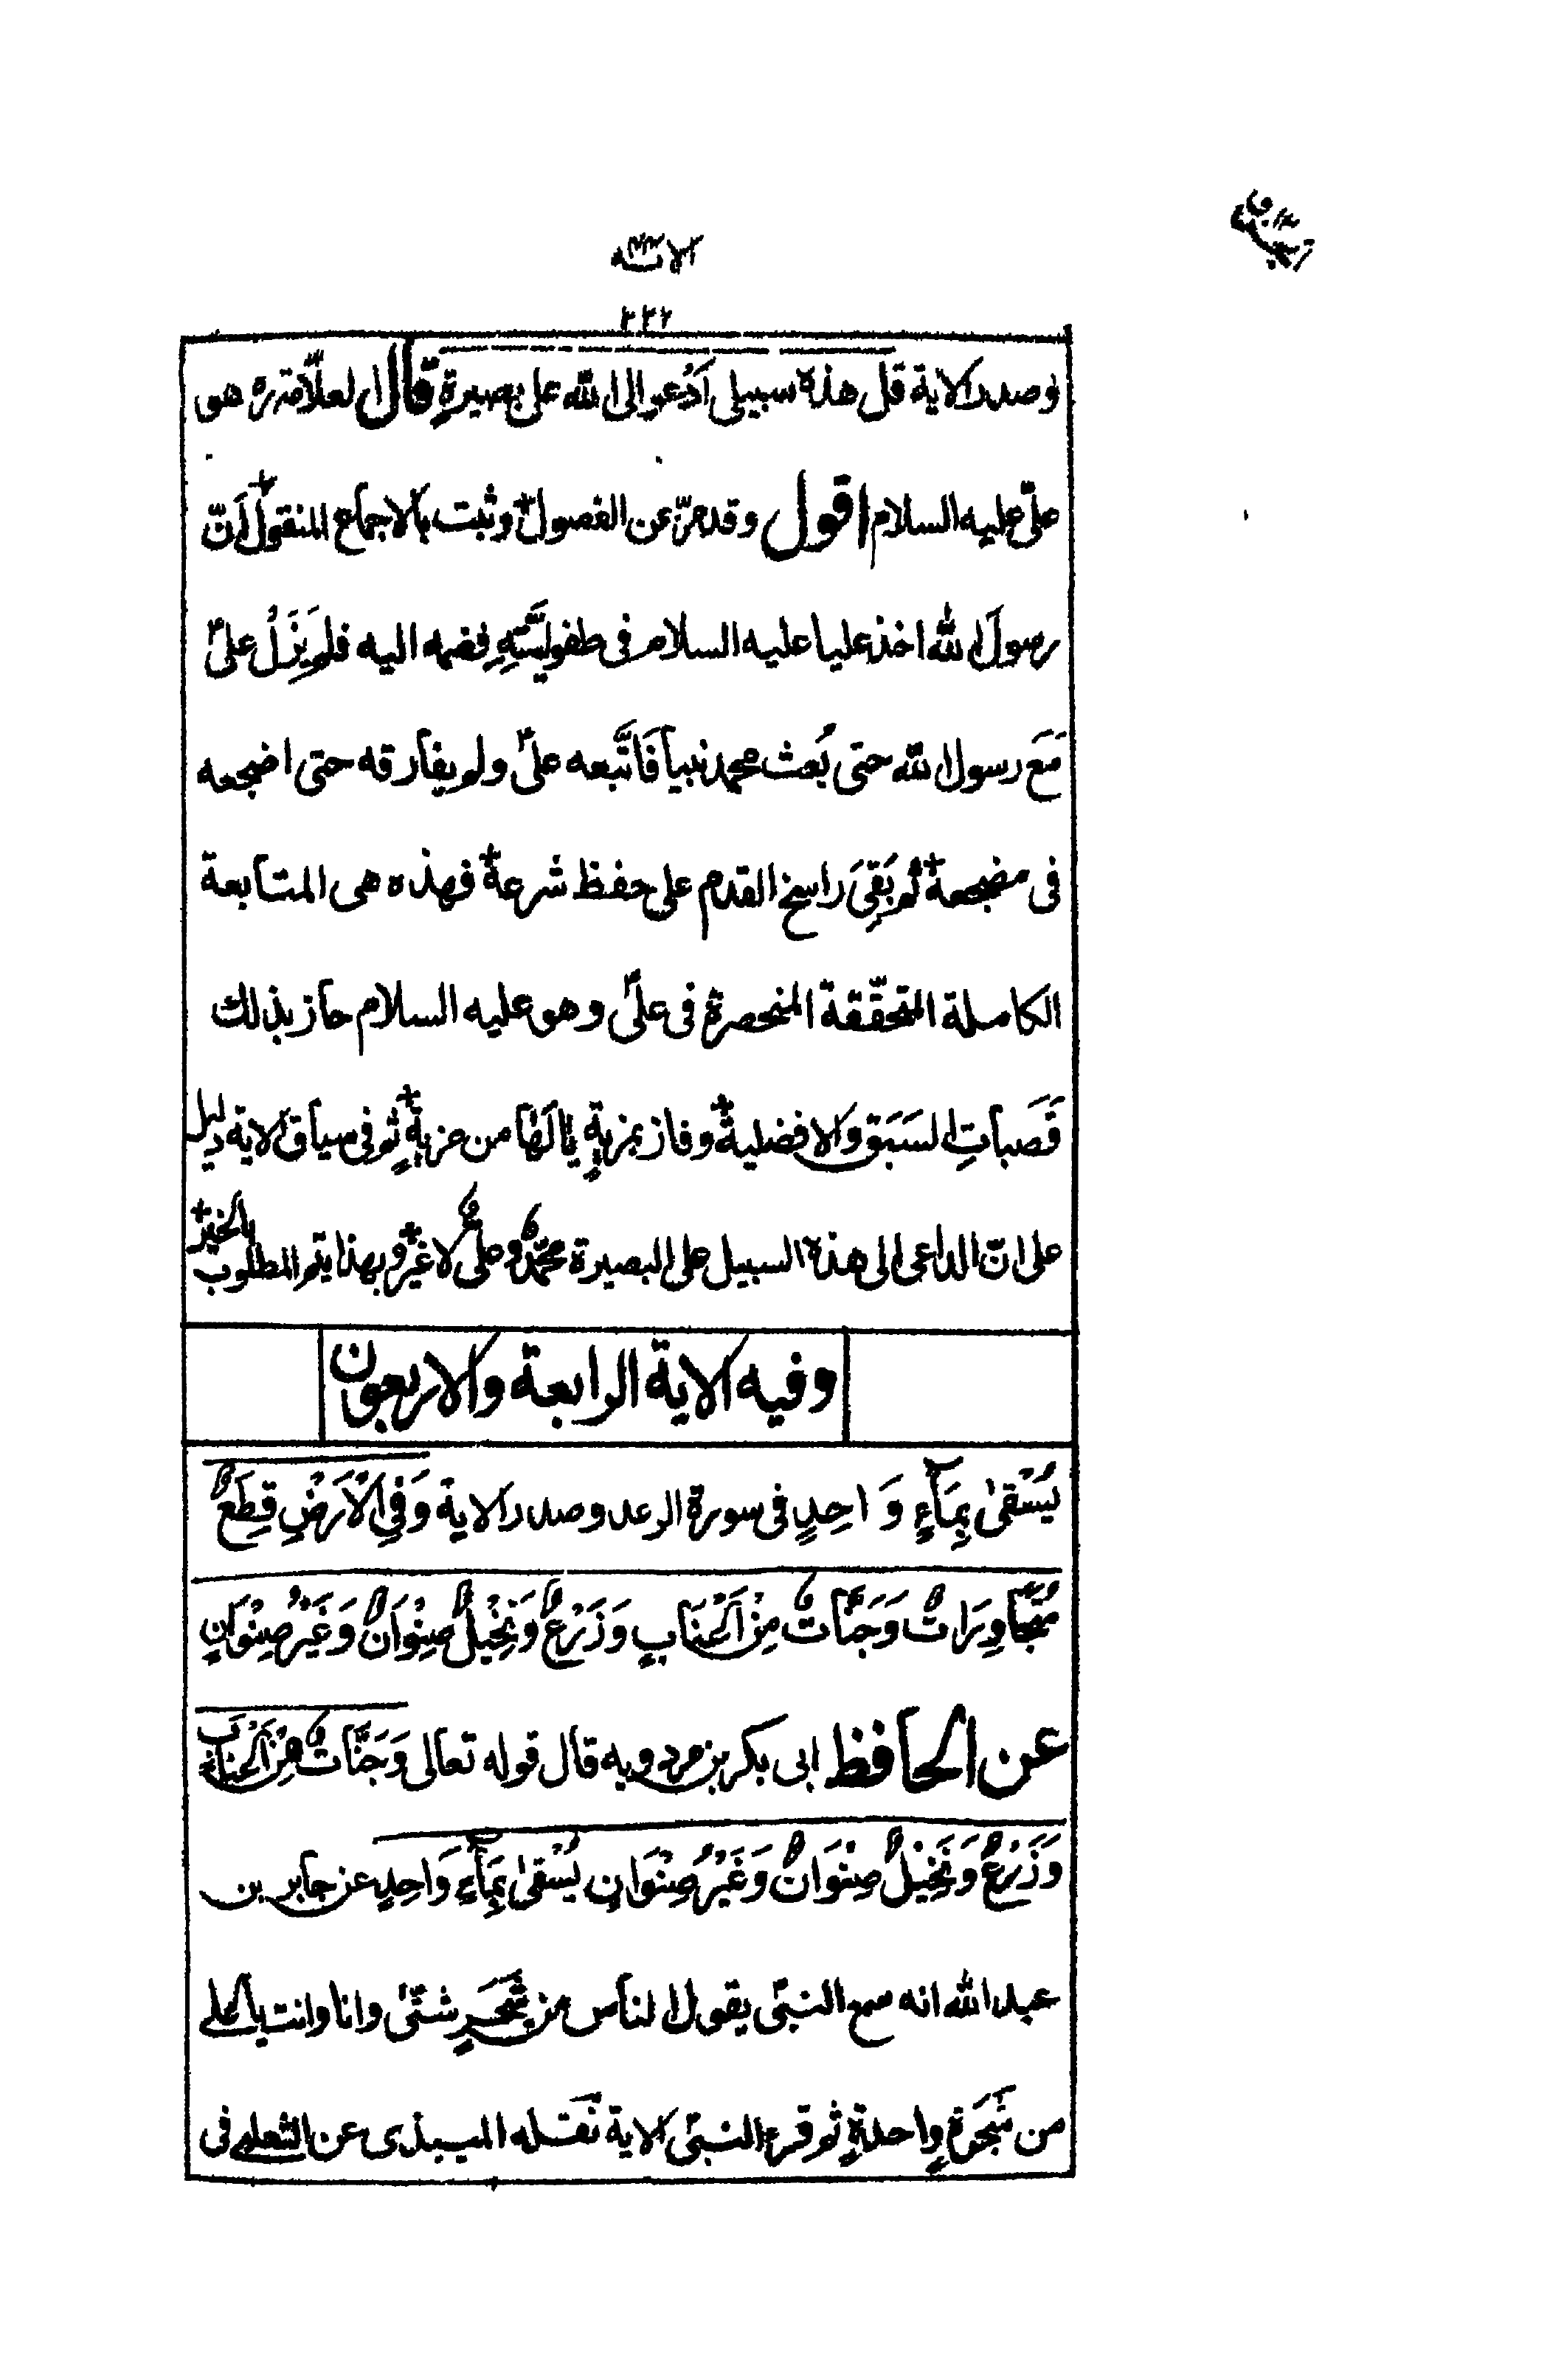 الاية ٤٣
٢٣٢
وصدر الاية قل هذه سبيلى اَدْعو الى الله على بصيرةٍ قال العلّامة ره هو
علىّ عليه السلام اقول وقد مرّ عن الفصول وثبت بالاجماع المنقول اَنّ
رسول الله اخذ عليا عليه السلام فى طفوليّتِهِ فضمه اليه فلم يَزَلْ علىّ
مَعَ رسول الله حتى بُعث محمد نبيا فَاتَّبعه علىّ ولم يفارقه حتى اضجعه
فى مضجعه ثم بَقِىَ راسخ القدم على حفظ شرعة فهذه هى المتابعة
الكاملة المتحقّقة المنحصرة فى علىّ وهو عليه السلام حاز بذلك
قَصَباتِ السَبَق والافضلية وفاز بمزيةٍ يا لَها من مزيةٍ ثم فى سياق الاية دليل
على انّ الداعى الى هذه السبيل على البصيرة محمّدٌ وعلىٌّ لا غير وبهذا يتم المطلوب بالخير
وفيه الاية الرابعة والاربعون
يُسْقىٰ بِمَآءٍ وَاحِدٍ فى سورة الرعد وصدر الاية وَفِى الْاَرْضِ قِطَعٌ
مُّتَجَاوِرَاتٌ وَجَنَّاتٌ مِنْ اَعْنَابٍ وَزَرْعٌ وَنَخِيْلٌ صِنْوَانٌ وَغَيْرُ صِنْوَانٍ
عن الحافظ ابى بكر بن مردويه قال قوله تعالى وَجَنَّاتٌ مِنْ اَعْنَابٍ
وَزَرْعٌ وَنَخِيْلٌ صِنْوَانٌ وَغَيْرُ صِنْوَانٍ يُسْقىٰ بِمَآءٍ وَاحِدٍ عن جابر بن
عبد الله انه سمع النبىّ يقول الناس من شَجَرٍ شتّىٰ وانا وانت يا على
من شَجَرَةٍ واحدةٍ ثم قرء النبىّ الاية نَقَله الميبذى عن الثعلبى فى